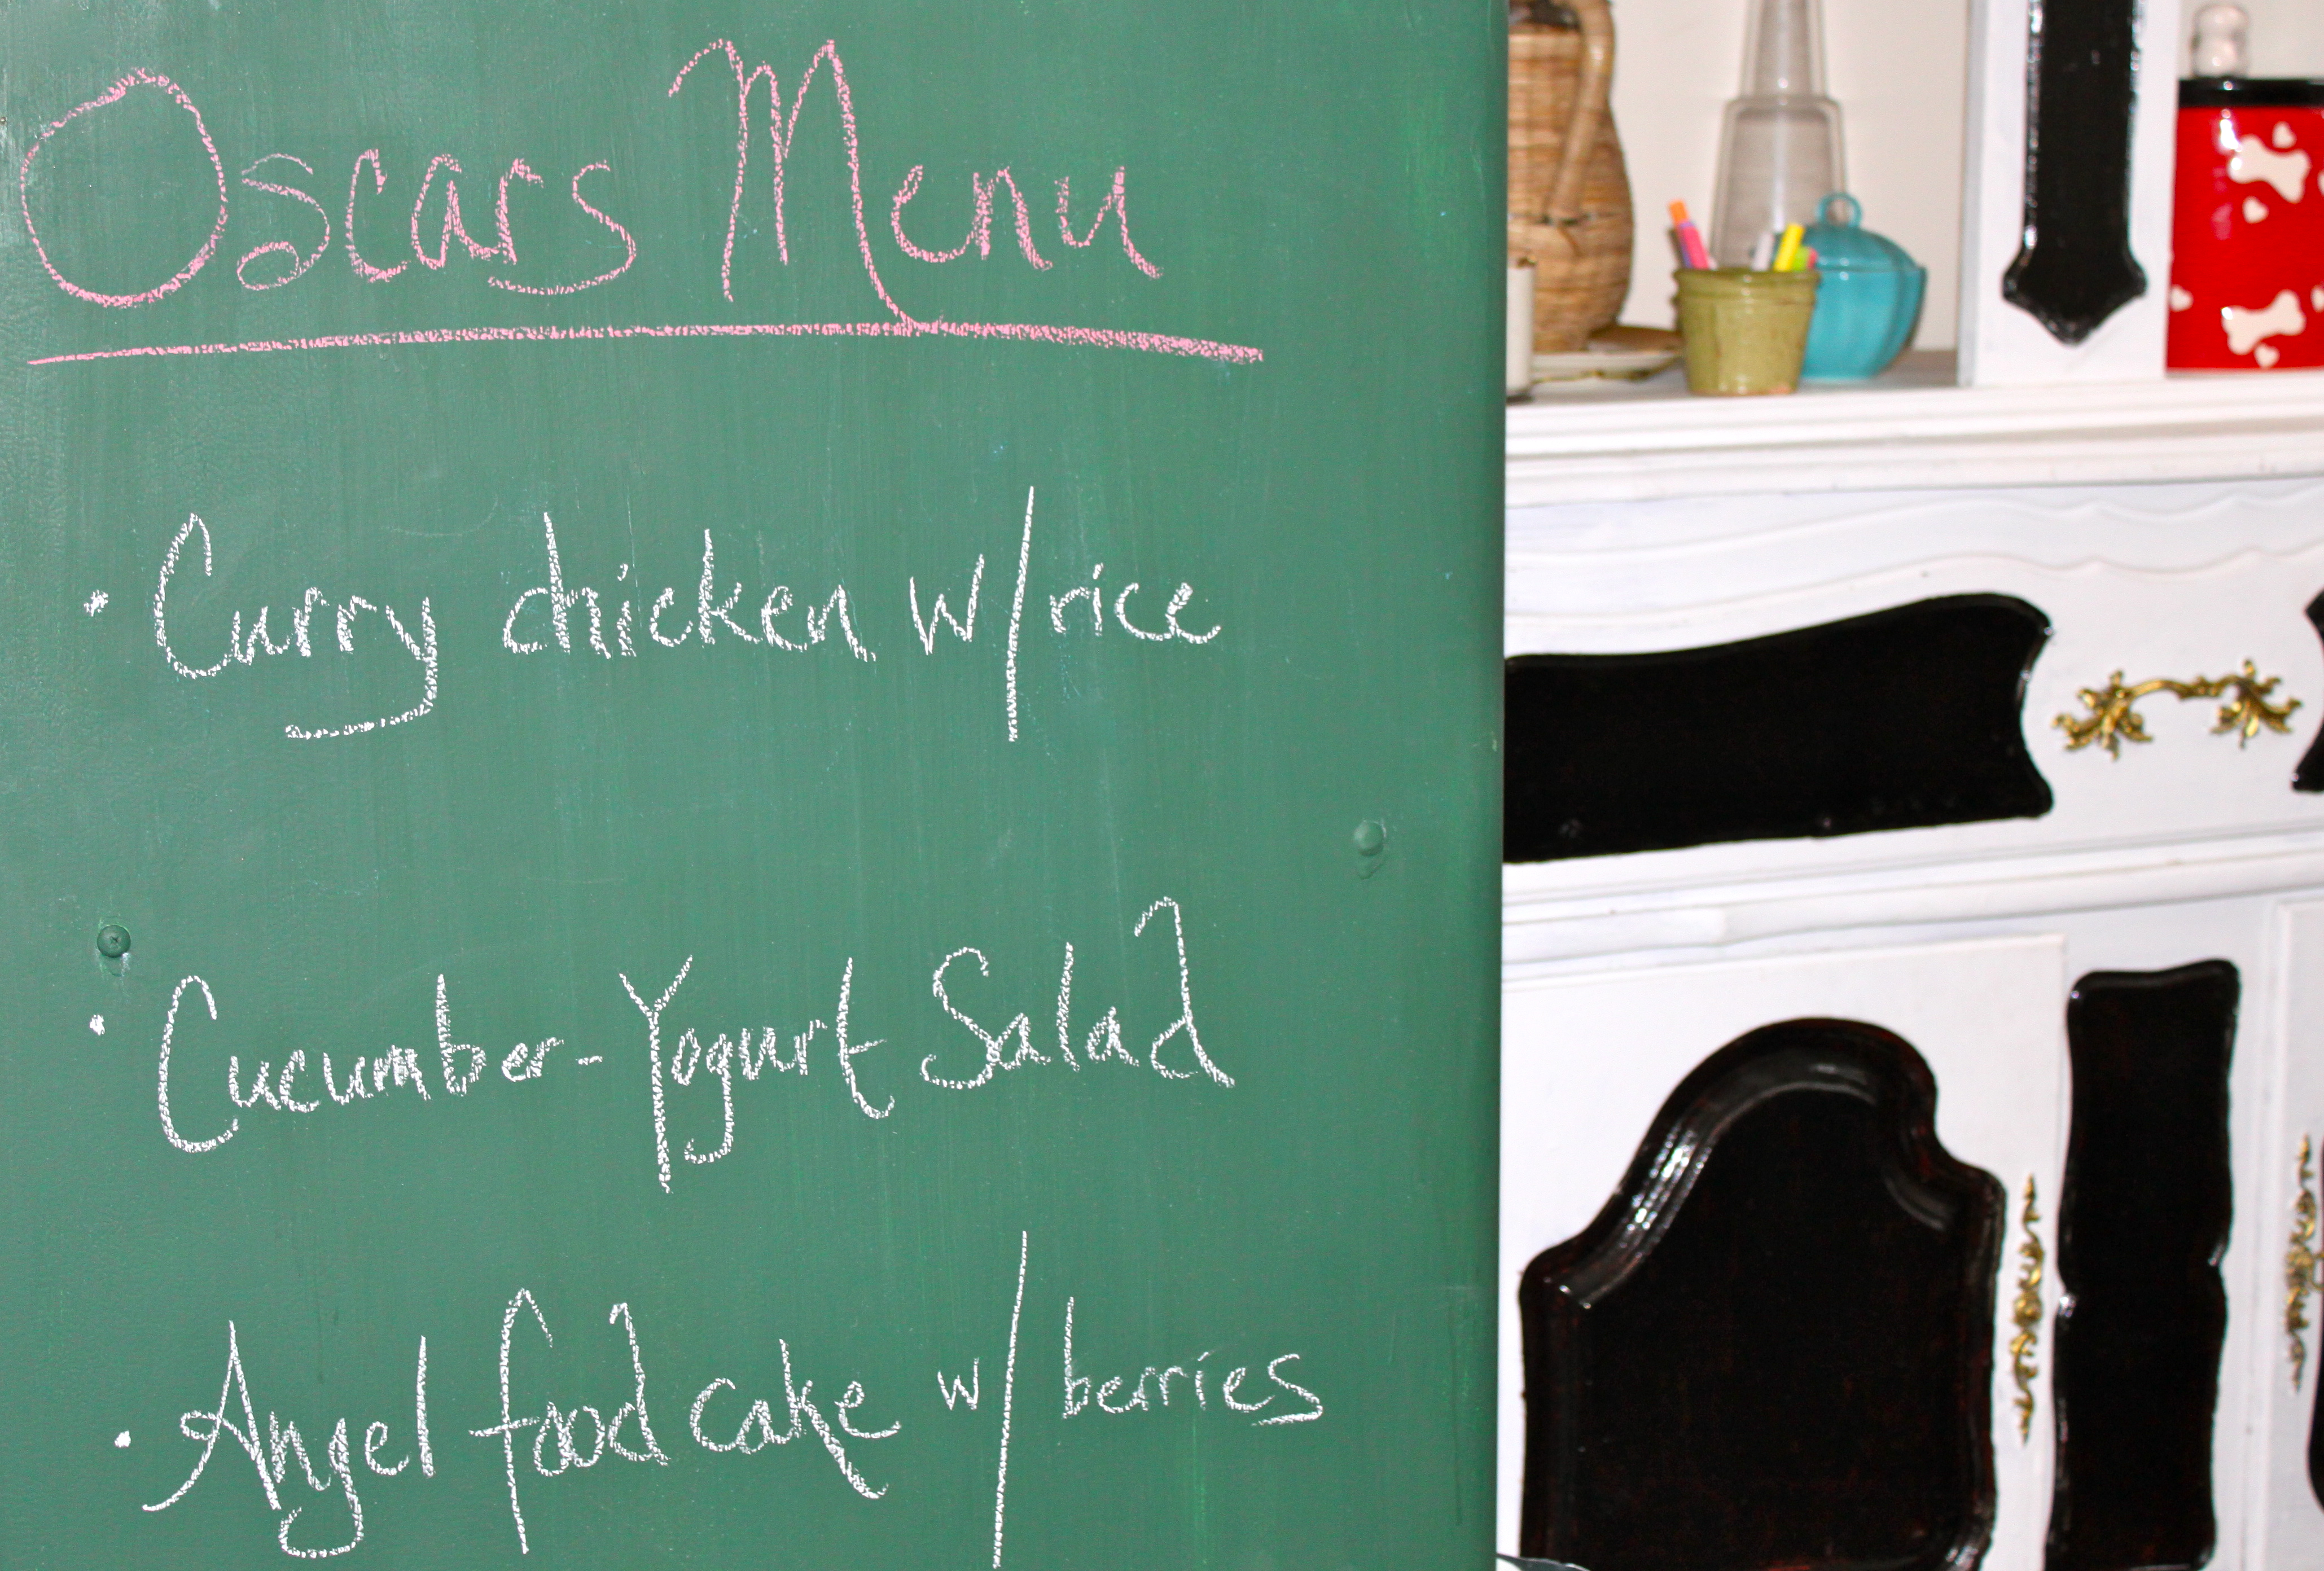 Oscars Menu
• Curry chicken w/rice
• Cucumber-Yogurt Salad
• Angel food cake w/ berries